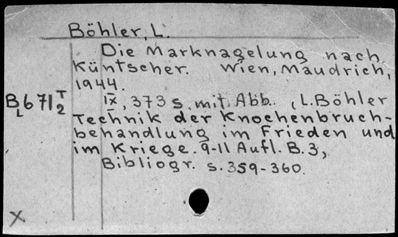 Böhler, L.
Die Marknagelung nach
Küntscher. Wien, Maudrich,
1944.
B671 T
L 2
IX, 373 s. mit Abb. (L. Böhler
Technik der Knochenbruch-
behandlung im Frieden und
im Kriege. 9-11 Aufl. B. 3,
Bibliogr. s. 359-360.
X